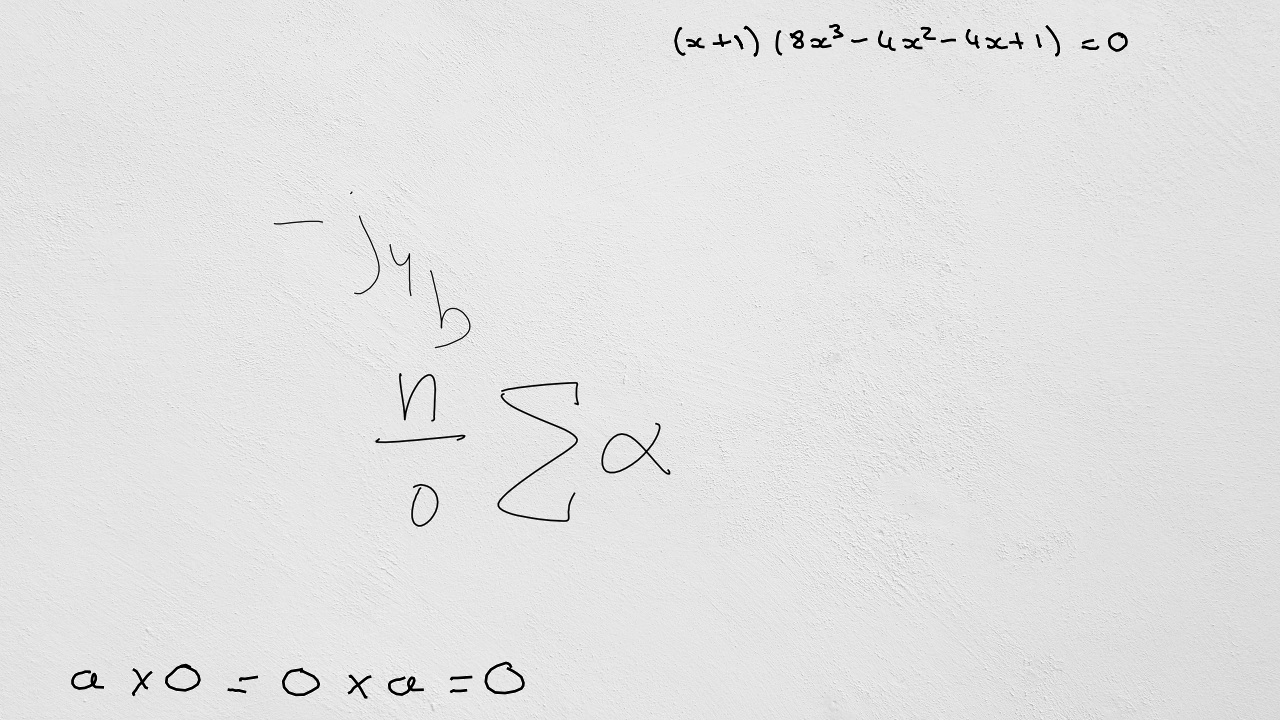 (x+1) (8x³ - 4x² - 4x + 1) = 0
-j_{y_b}
\frac{n}{0} \sum \alpha
a × 0 = 0 × a = 0